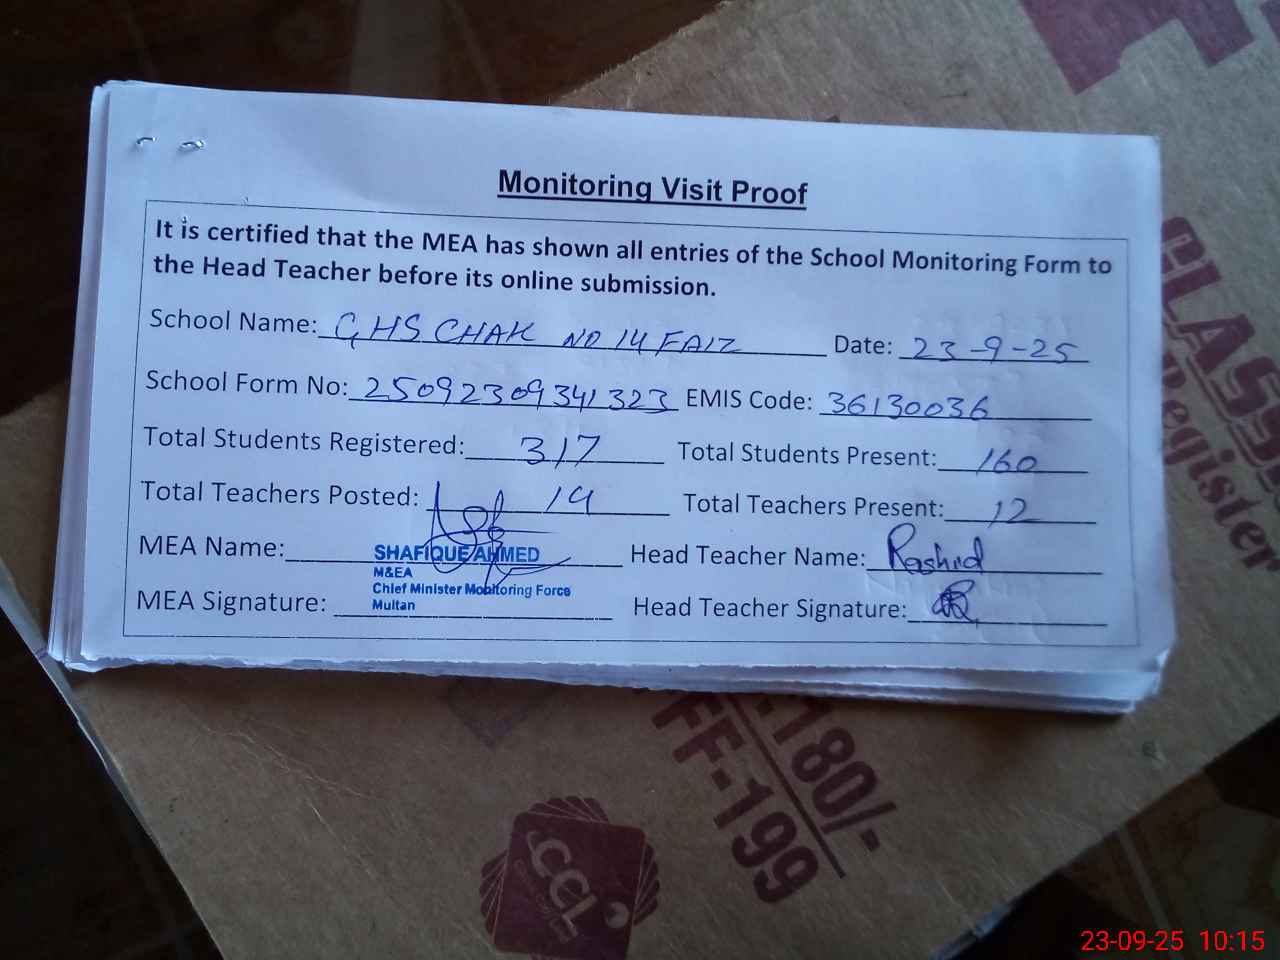 Monitoring Visit Proof
It is certified that the MEA has shown all entries of the School Monitoring Form to
the Head Teacher before its online submission.
School Name: GHS CHAK NO 14 FAIZ Date: 23-9-25
School Form No: 25092309341323 EMIS Code: 36130036
Total Students Registered: 317 Total Students Present: 160
Total Teachers Posted: 14 Total Teachers Present: 12
MEA Name: SHAFIQUE AHMED Head Teacher Name: Rashid
M&EA
Chief Minister Monitoring Force
MEA Signature: Multan Head Teacher Signature:
CLASS
Register
180/-
FF-199
CCL
23-09-25 10:15